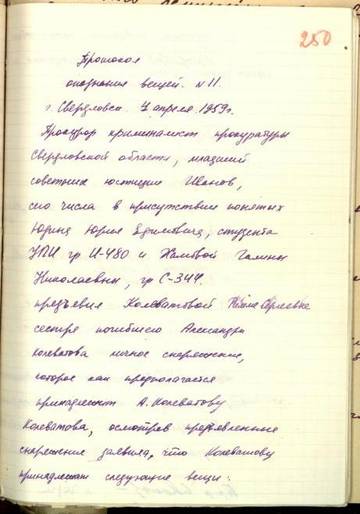 250
Протокол
опознания вещей. N 11.
г. Свердловск. 7 апреля 1959г.
Прокурор криминалист прокуратуры
Свердловской области, младший
советник юстиции Иванов,
сего числа в присутствии понятых
Юрия Ефимовича, студента
УПИ гр И-480 и Галины
Николаевны, гр С-344.
предъявил Колеватовой
сестре погибшего Александра
Колеватова личное снаряжение,
которое как предполагается
принадлежит А. Колеватову
Колеватова, осмотрев предъявленные
снаряжение заявила, что Колеватову
принадлежат следующие вещи: